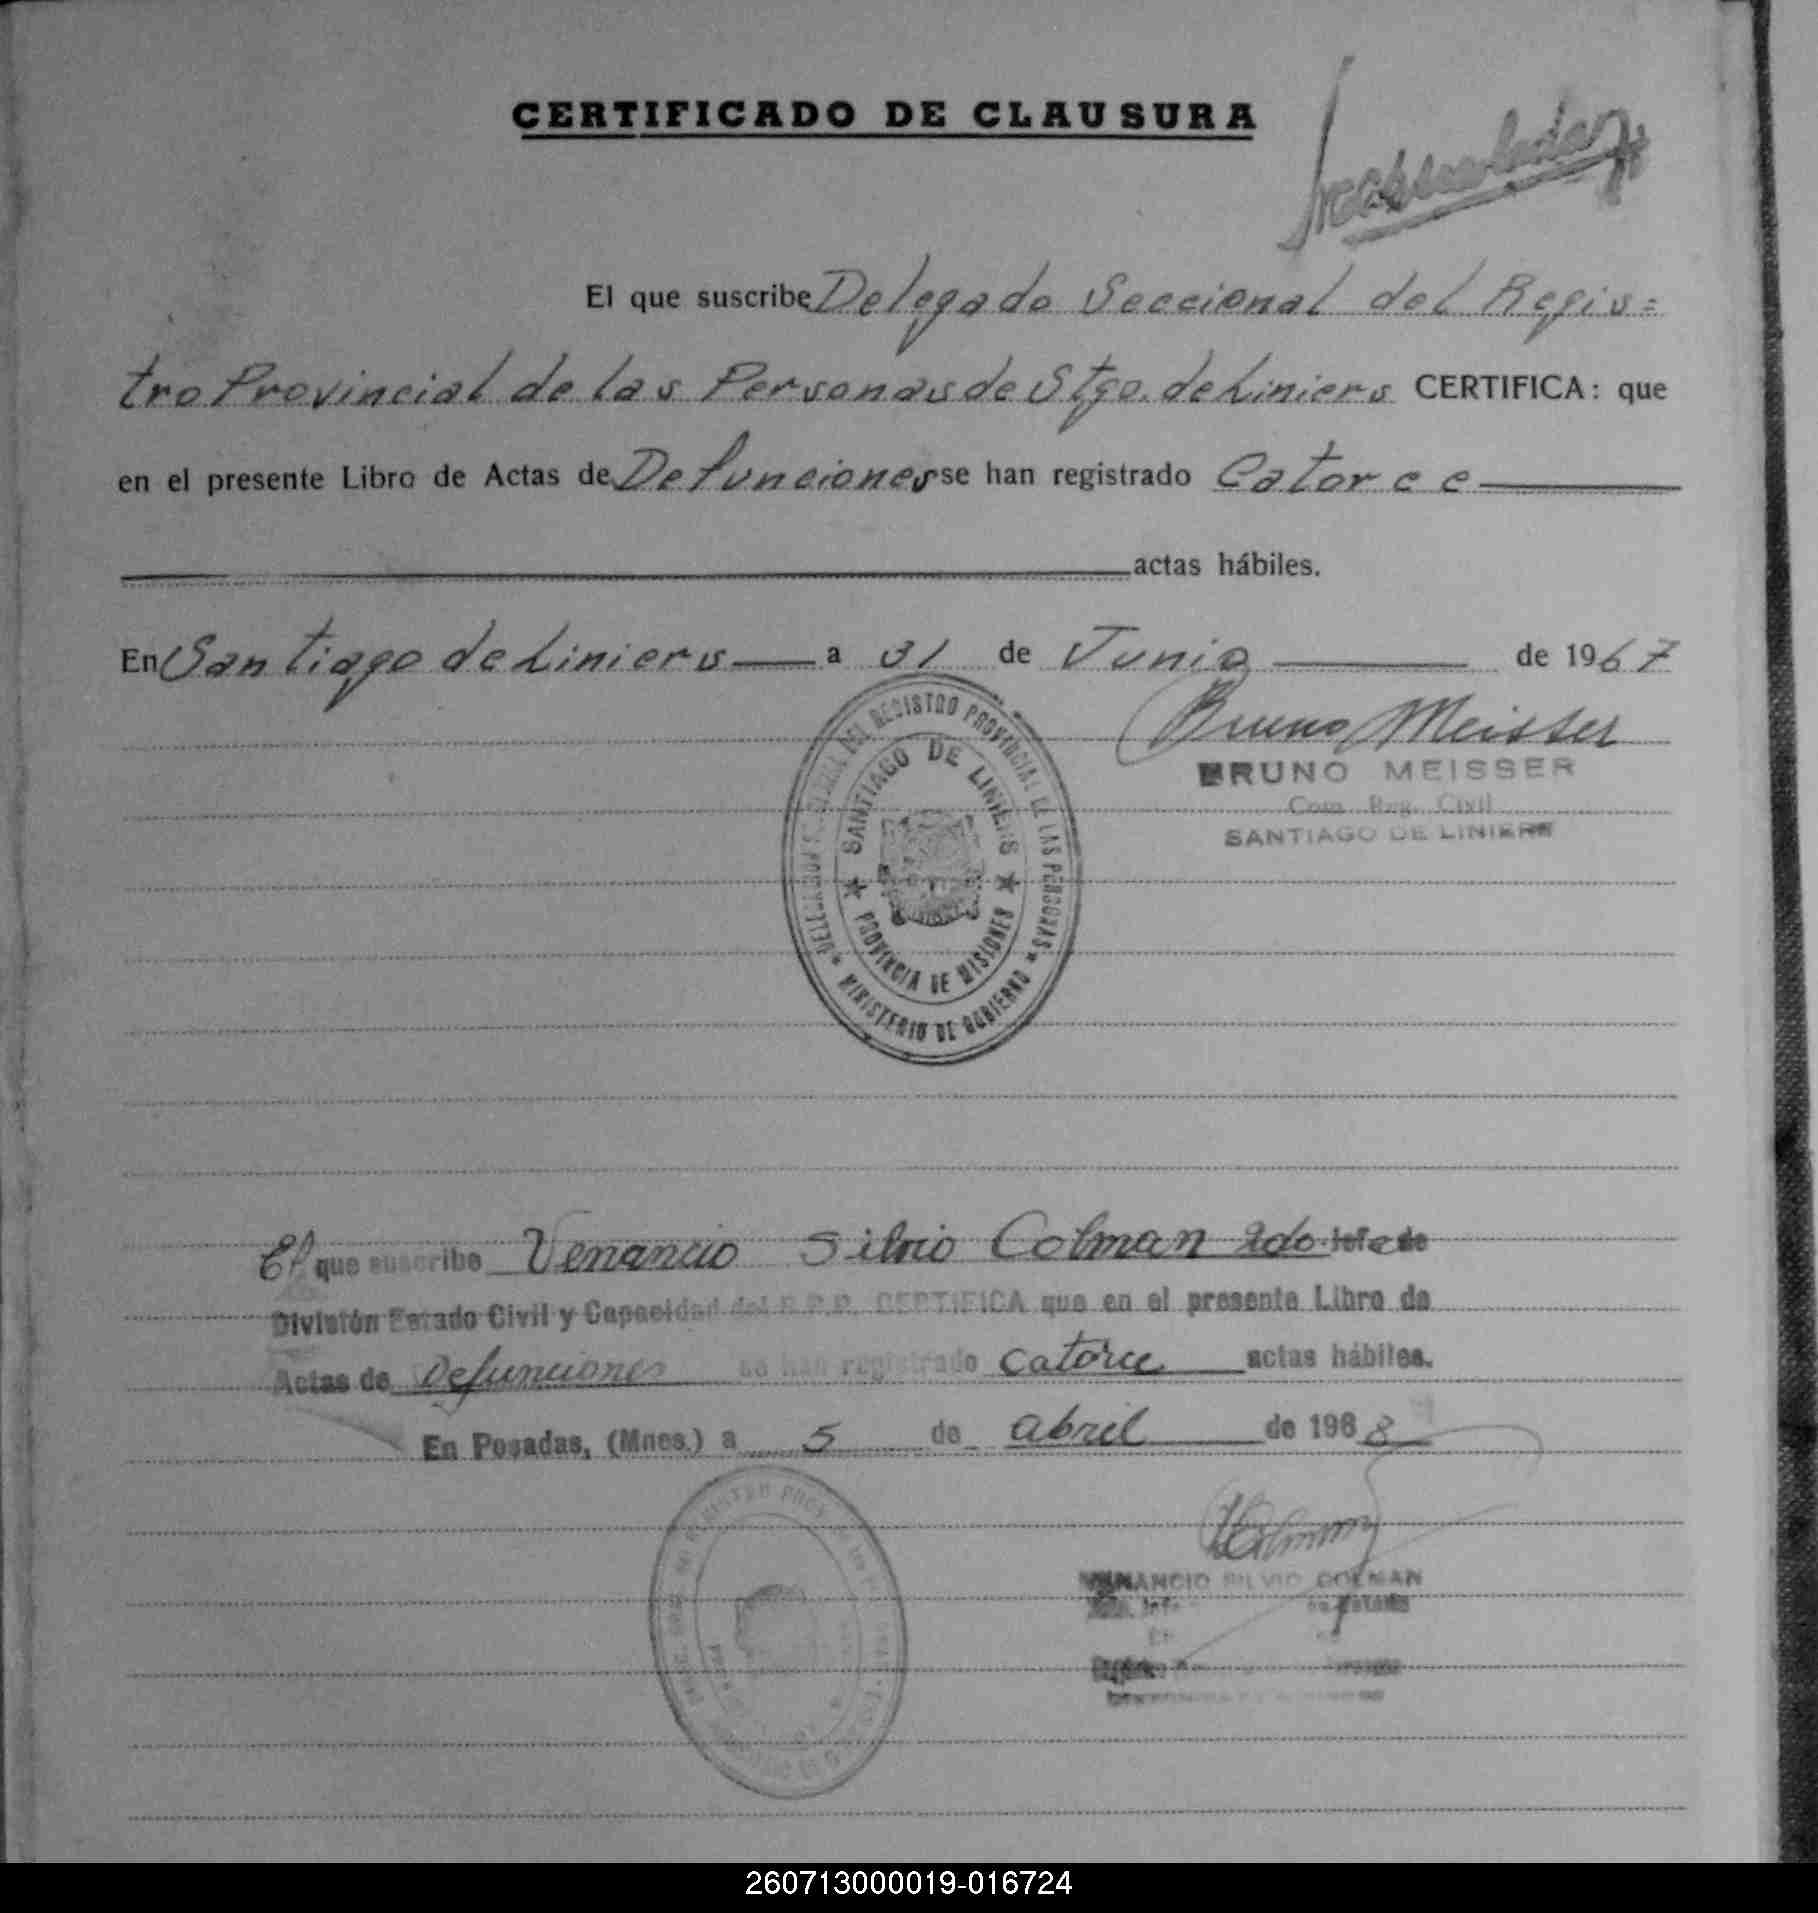 CERTIFICADO DE CLAUSURA
El que suscribe Delegado Seccional del Regis=
tro Provincial de las Personas de Stgo. de Liniers CERTIFICA: que
en el presente Libro de Actas de Defunciones se han registrado Catorce
actas hábiles.
En Santiago de Liniers a 31 de Junio de 1967
Bruno Meisser
BRUNO MEISSER
Com. Reg. Civil
SANTIAGO DE LINIERS
DEL REGISTRO PROVINCIAL DE LAS PERSONAS
SANTIAGO DE LINIERS
PROVINCIA DE MISIONES
MINISTERIO DE GOBIERNO
El que suscribe Venancio Silvio Colman 2do Jefe de
División Estado Civil y Capacidad del R.P.P. CERTIFICA que en el presente Libro de
Actas de Defunciones se han registrado catorce actas hábiles.
En Posadas, (Mnes.) a 5 de abril de 1988
VENANCIO SILVIO COLMAN
260713000019-016724